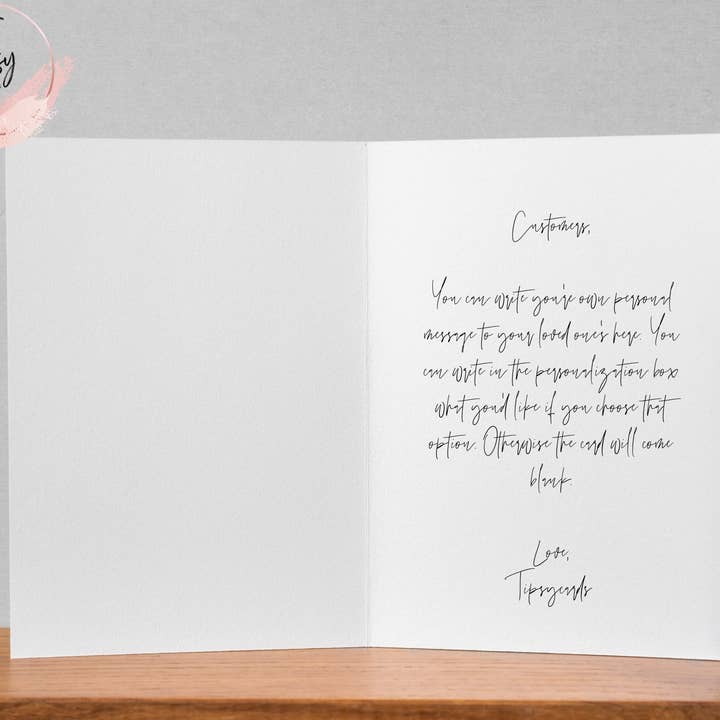 Customers,
You can write you're own personal
message to your loved one's here. You
can write in the personalization box
what you'd like if you choose that
option. Otherwise the card will come
blank.
Love,
Tipsycards